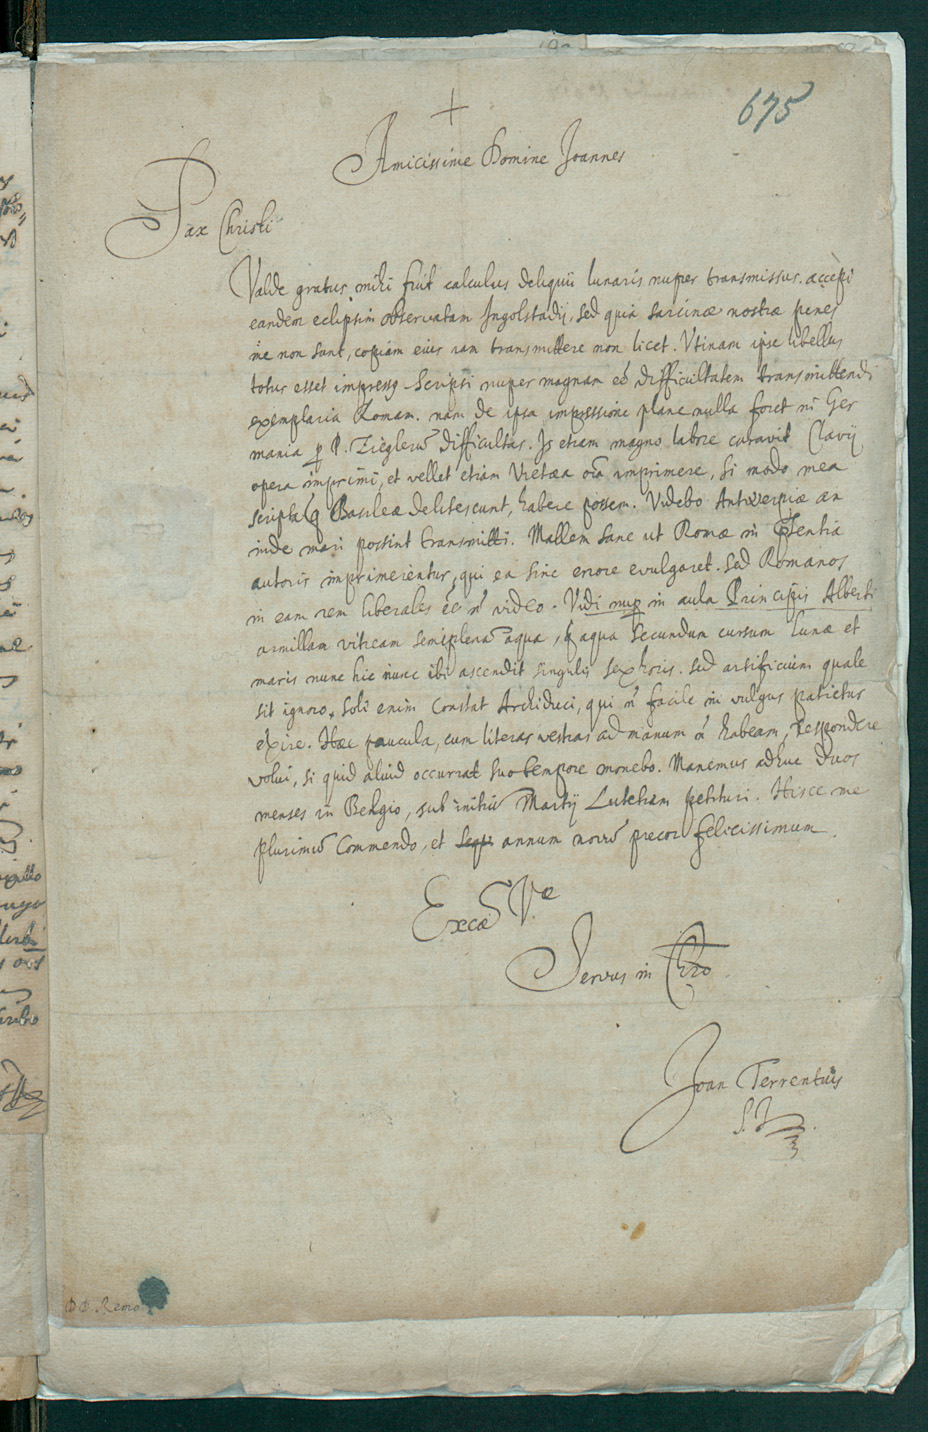 675
Amicissime Domine Joannes
Pax Christi
Valde gratus mihi fuit calculus deliquii lunaris nuper transmissus. accèpi
eandem eclipsim observatam Ingolstadij, sed quia sarcinæ nostræ penes
me non sunt, copiam eius iam transmittere non licet. Vtinam ipse libellus
totus esset impressq Scripsi nuper magnam eē difficultatem transmittendi
exemplaria Romam. nam de ipsa impressione plane nulla foret in Ger
mania p P. Zieglerū difficultas. Is etiam magno labore curavit Clavij
opera imprimi, et vellet etiam Vietæa oīa imprimere, si modo mea
scripta q Basileæ delitescunt, habere possem. Videbo Antwerpiæ an
inde mari possint transmitti. Mallem sane ut Romæ in pñsentia
autoris imprimerentur, qui ea sine errore evulgaret. sed Romanos
in eam rem liberales eē nō video. Vidi nup in aula Principis Alberti
armillam vitream semiplenā aqua, q aqua secundum cursum lunæ et
maris nunc hic nunc ibi ascendit singulis sex horis. sed artificium quale
sit ignoro, soli enim constat Archiduci, qui nō facile in vulgus patietur
exire. Hæc paucula, cum literas vestras ad manum nō habeam, respondere
volui, si quid aliud occurrat suo tempore monebo. Manemus adhuc duos
menses in Belgio, sub initiū Martij Lutetiam petituri. Hisce me
plurimū commendo, et annum novū precor felicissimum.
Excæ V.æ
Servus in Chro
Joan Terrentius
S.J.
D D. Remo